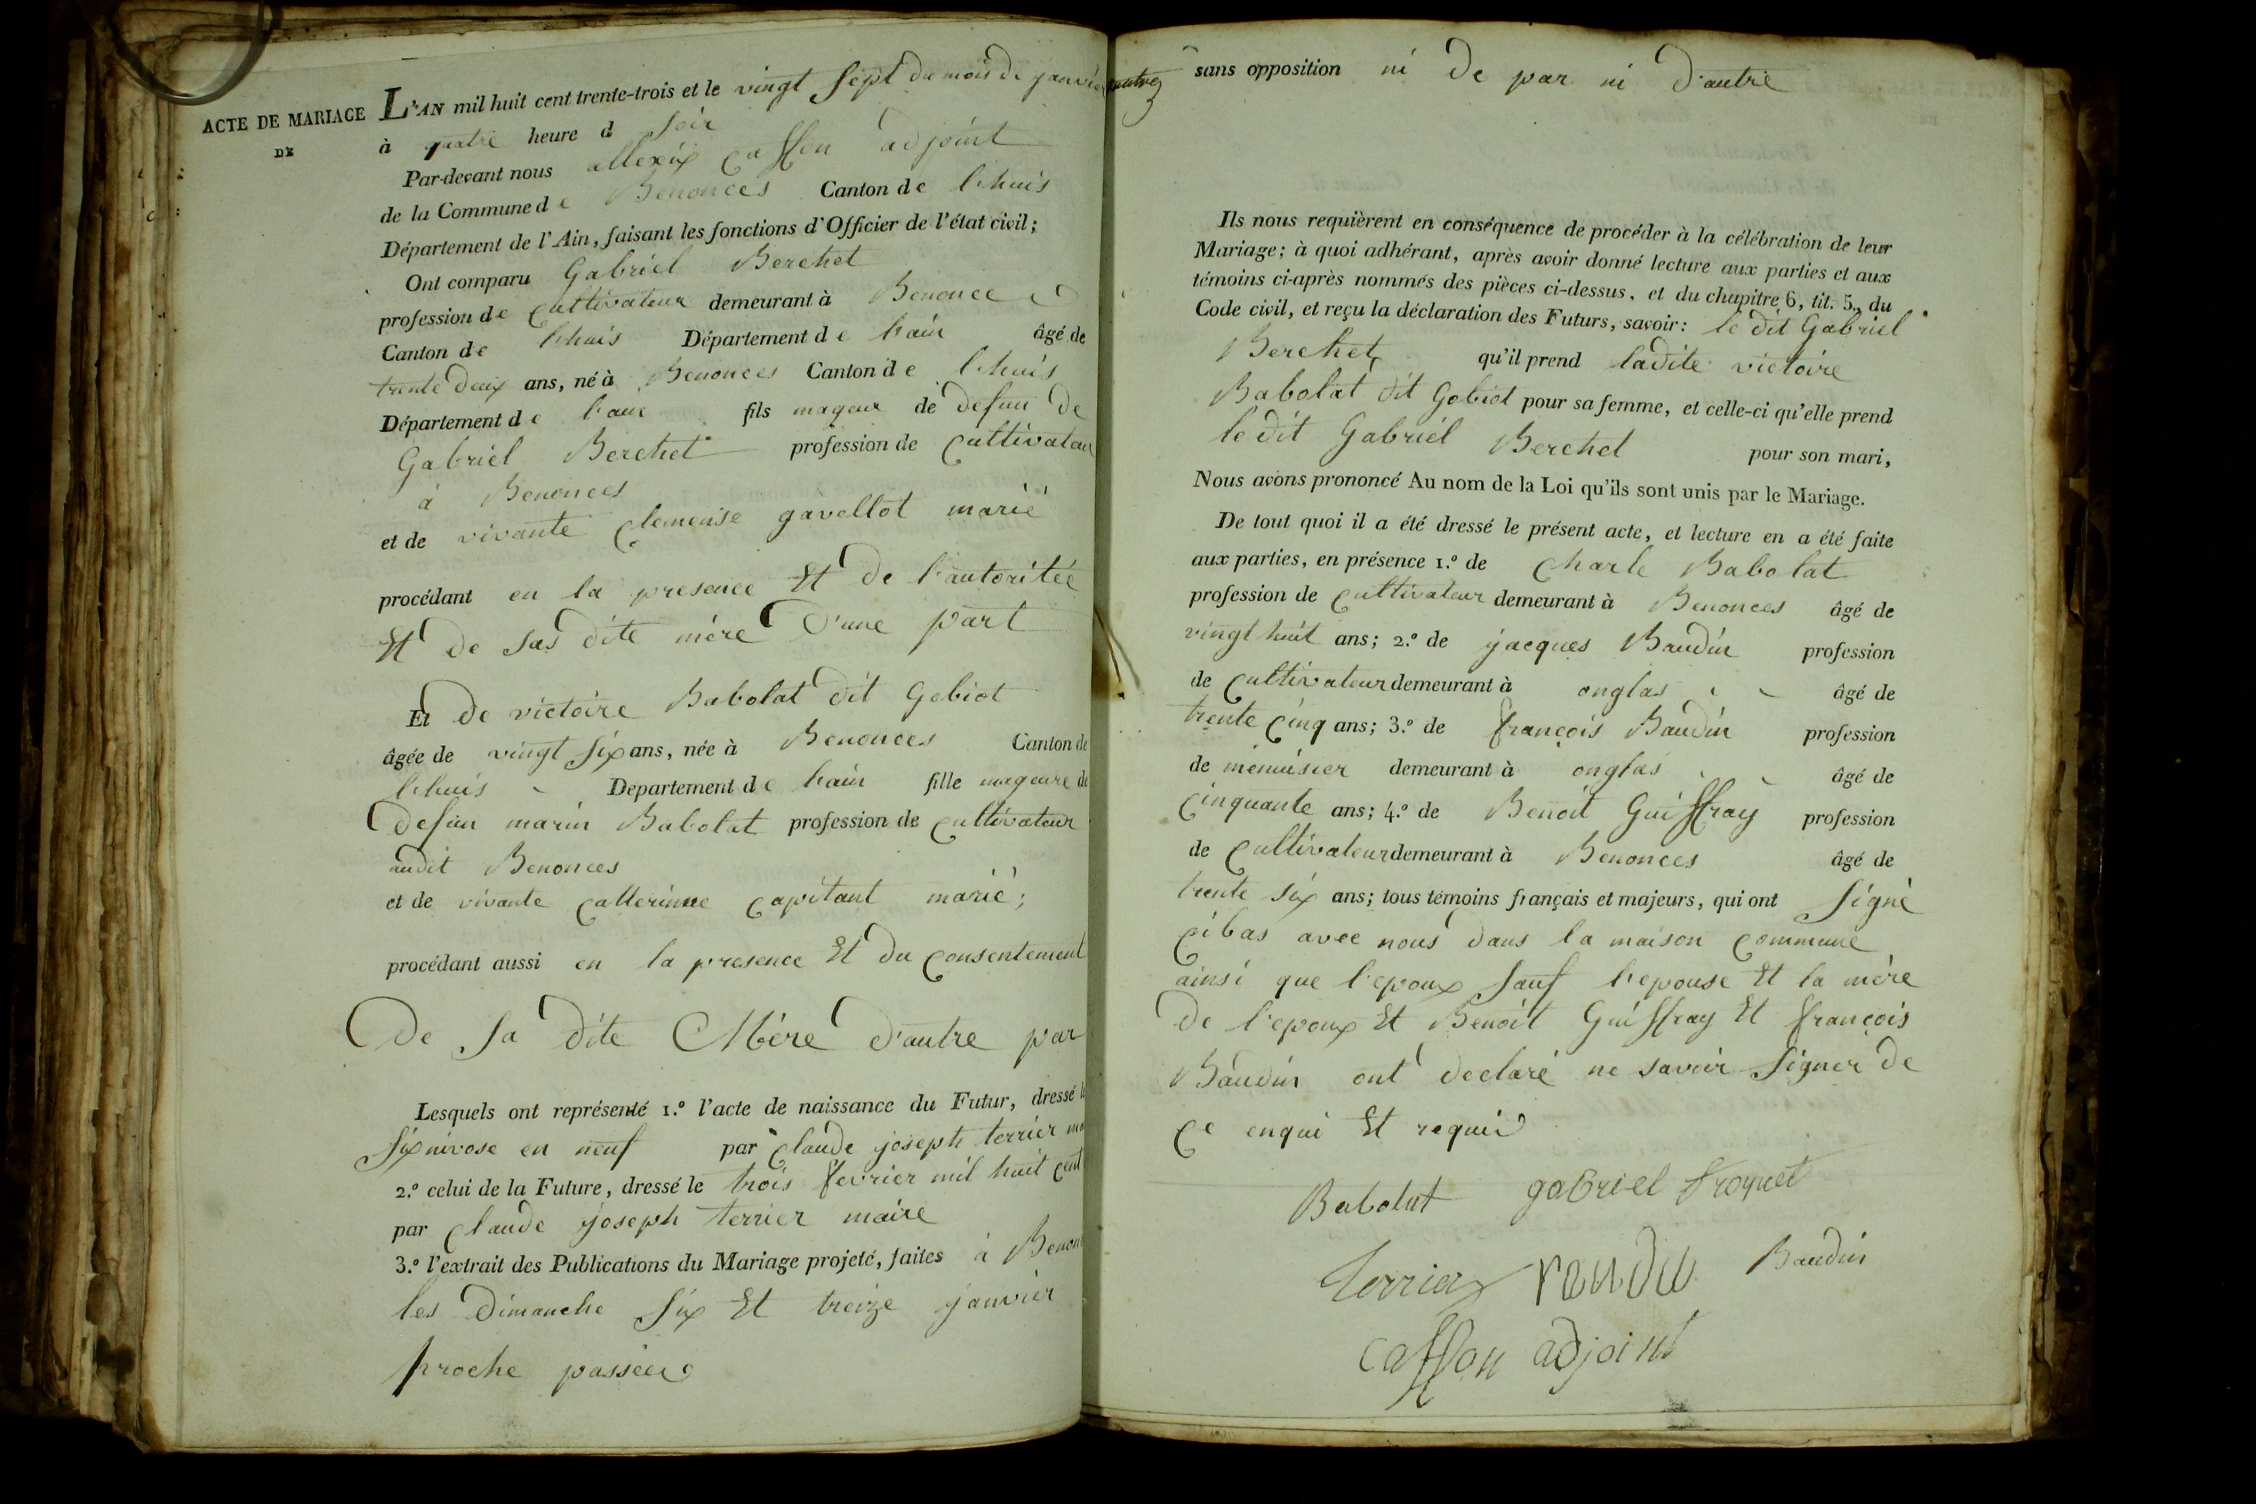 ACTE DE MARIAGE
DE
L'AN mil huit cent trente-trois et le vingt sept du mois de janvier
à quatre heure d soir
Par-devant nous allexix Caffon adjoint
de la Commune de Benonces Canton de lhuis
Département de l'Ain, faisant les fonctions d'Officier de l'état civil;
Ont comparu Gabriel Berchet
profession de Cultivateur demeurant à Benonce
Canton de lhuis Département de lain âgé de
trente deux ans, né à Benonces Canton de lhuis
Département de lain fils mageur de defun de
Gabriel Berchet profession de Cultivateur
à Benonces
et de vivante Clemense gavellot marié
procédant en la presence Et de l'autoritée
Et de sas dite mère d'une part
Et De victoire Babolat dit Gobiot
âgée de vingt six ans, née à Benonces Canton de
lhuis Departement de lain fille mageure de
Defun marin Babolat profession de Cultivateur
audit Benonces
et de vivante Catterinne Capitant marié;
procédant aussi en la presence Et du Consentement
De sa dite Mère d'autre par
Lesquels ont représenté 1.º l'acte de naissance du Futur, dressé le
six nivose en neuf par Claude joseph terrier
2.º celui de la Future, dressé le trois fevrier mil huit Cent
par Claude joseph terrier maire
3.º l'extrait des Publications du Mariage projeté, faites à
les dimanche six Et treize janvier
proche passées
sans opposition ni de par ni d'autre
Ils nous requièrent en conséquence de procéder à la célébration de leur
Mariage; à quoi adhérant, après avoir donné lecture aux parties et aux
témoins ci-après nommés des pièces ci-dessus, et du chapitre 6, tit. 5., du
Code civil, et reçu la déclaration des Futurs, savoir: le dit Gabriel
Berchet qu'il prend ladite victoire
Babolat dit Gobiot pour sa femme, et celle-ci qu'elle prend
le dit Gabriel Berchet pour son mari,
Nous avons prononcé Au nom de la Loi qu'ils sont unis par le Mariage.
De tout quoi il a été dressé le présent acte, et lecture en a été faite
aux parties, en présence 1.º de Charle Babolat
profession de Cultivateur demeurant à Benonces âgé de
vingt huit ans; 2.º de jacques Baudin profession
de Cultivateur demeurant à onglas âgé de
trente Cinq ans; 3.º de françois Baudin profession
de menuisier demeurant à onglas âgé de
Cinquante ans; 4.º de Benoit Guiffray profession
de Cultivateur demeurant à Benonces âgé de
trente six ans; tous témoins français et majeurs, qui ont signé
Cibas avec nous dans la maison Commune
ainsi que l'epoux sauf l'epouse Et la mère
De l'epoux Et Benoit Guiffray Et françois
Baudin ont declaré ne savoir signer de
Ce enqui Et requis
Babolat gabriel
terrier rendu Baudin
caffon adjoint